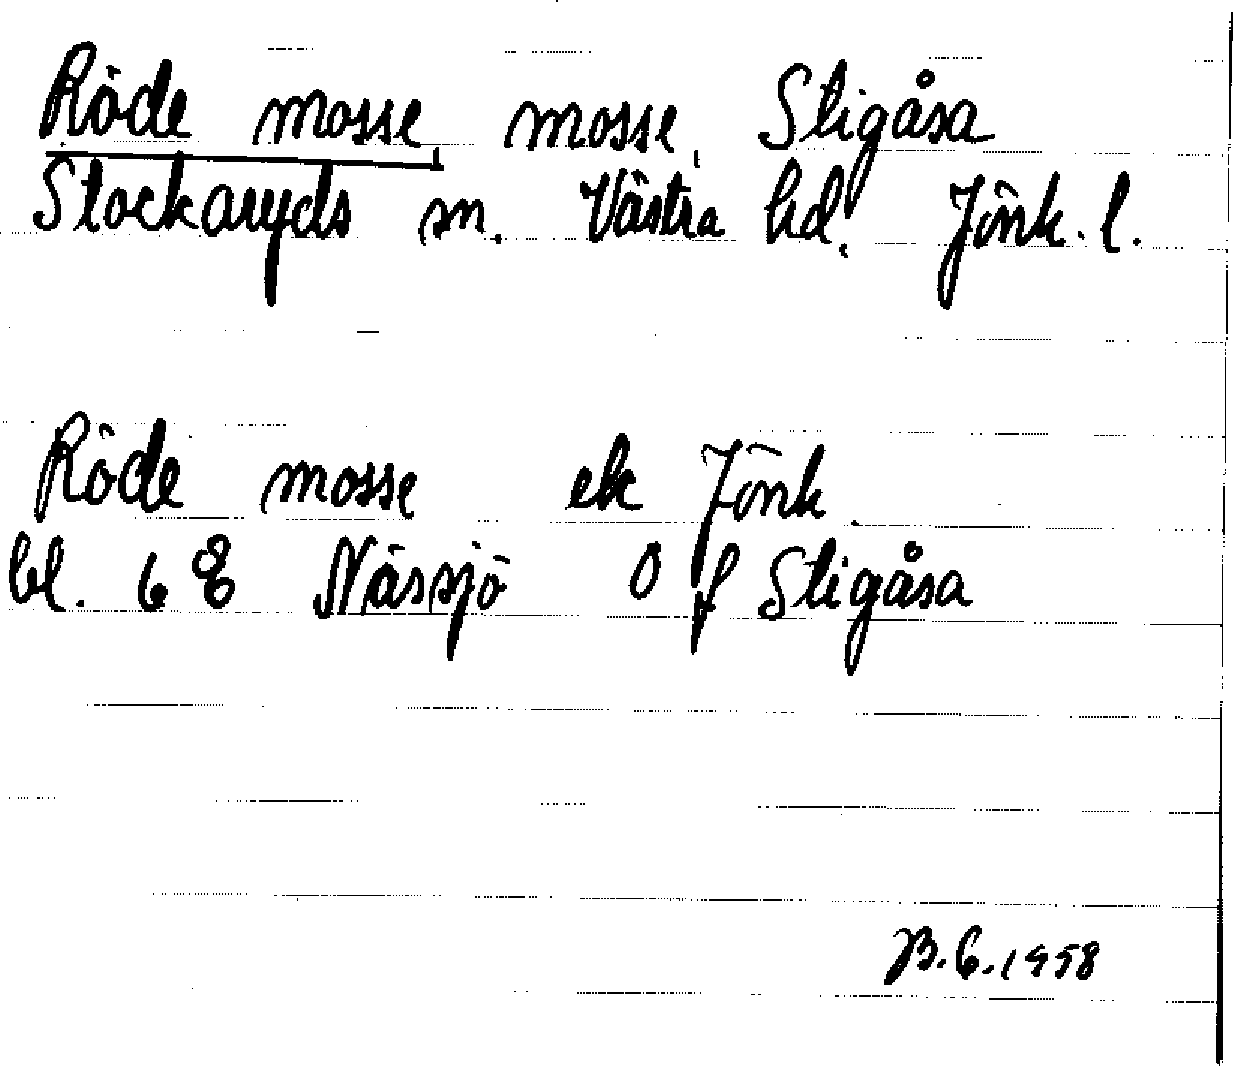 Röde mosse, mosse, Stigåsa
Stockaryds sn. Västra hd. Jönk. l.
Röde mosse ek Jönk.
bl. 68 Nässjö O f Stigåsa
B.G. 1958